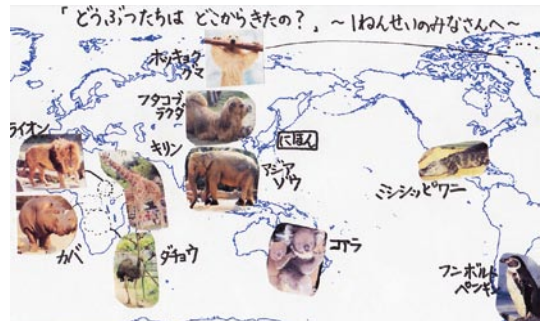 「どうぶつたちは どこからきたの？」 ～1ねんせいのみなさんへ～
ホッキョク
グマ
フタコブ
ラクダ
ライオン
キリン
にほん
アジア
ゾウ
ミシシッピワニ
カバ
ダチョウ
コアラ
フンボルト
ペンギン